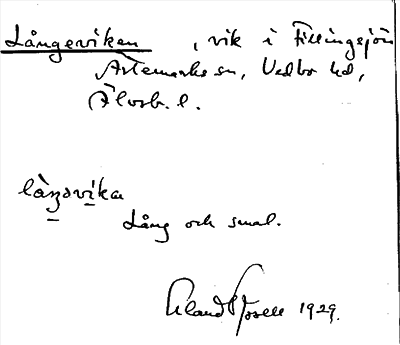 Långeviken, vik i Tillingsjön
Ärtemarks sn, Vedbo hd,
Älvsb. l.
långsvika
Lång och smal.
1929.